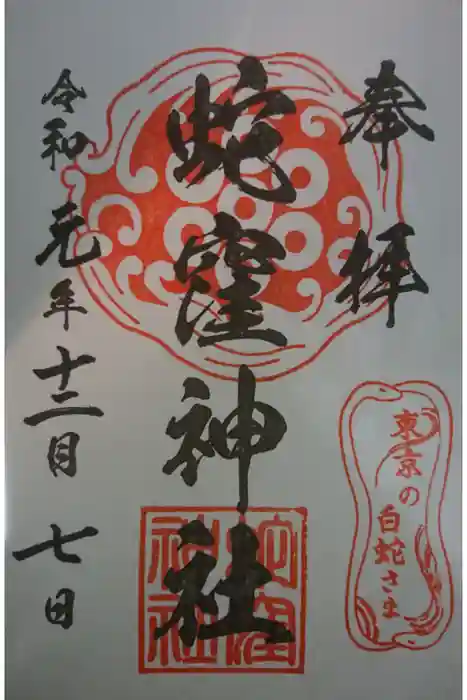 奉拝
蛇窪神社
令和元年十二月七日
東京の
白蛇さま
蛇窪
神社